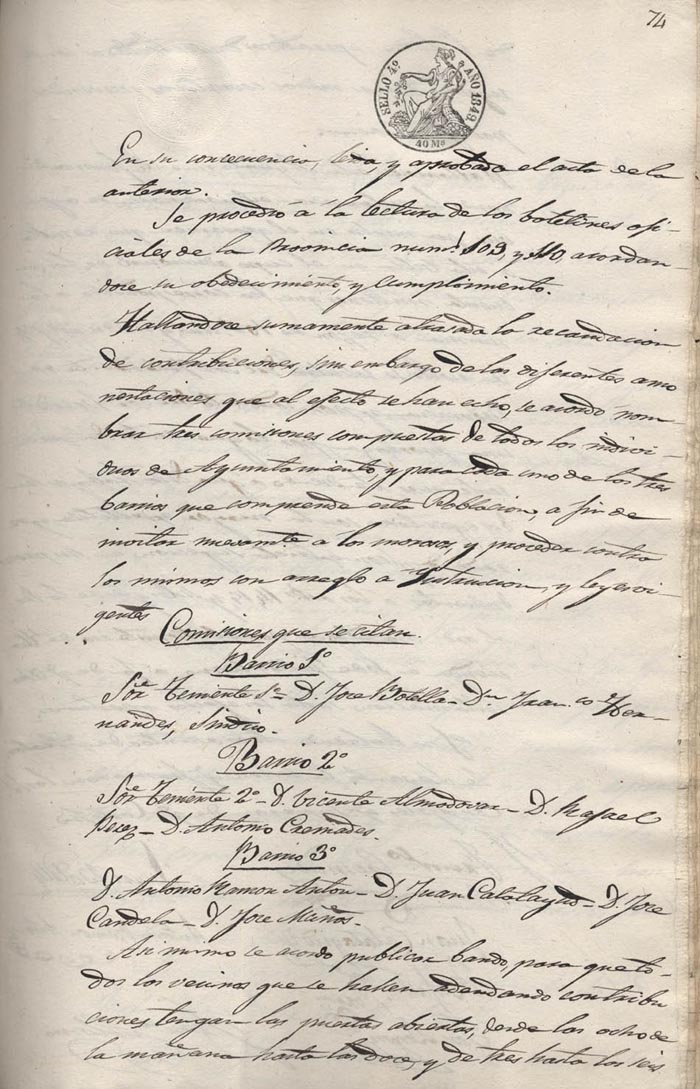 74
SELLO 4º AÑO 1849.
40 Ms
En su consecuencia, leida, y aprobada el acta de la
anterior.
Se procedió á la lectura de los boletines ofi-
ciales de la Provincia num.s 109, y 110, acordan-
dose su obedecimiento, y cumplimiento.
Hallandose sumamente atrasada la recaudacion
de contribuciones, sin embargo de las diferentes amo
nestaciones que al efecto se han echo, se acordó nom-
brar tres comisiones compuestas de todos los indivi-
duos de Ayuntamiento, y para cada uno de los tres
barrios que comprende esta Poblacion, a fin de
invitar nuevamte a los morosos, y proceder contra
los mismos con arreglo a Instruccion, y leyes vi-
gentes
Comisiones que se citan.
Barrio 1º
Sor Teniente 1º D. Jose Botella - Dn Fran.co Her-
nandes, Sindico.
Barrio 2º
Sor Teniente 2º - D. Vicente Almodovar - D. Rafael
Perez - D. Antonio Cremades.
Barrio 3º
D. Antonio Ramon Anton - D Juan Calatayud - D. Jose
Candela - D. Jose Muños.
Asi mimo se acordo publicar bando, para que to-
dos los vecinos que se hallen adeudando contribu
ciones tengan las puertas abiertas, desde las ocho de
la mañana hasta las doce, y de tres hasta las seis